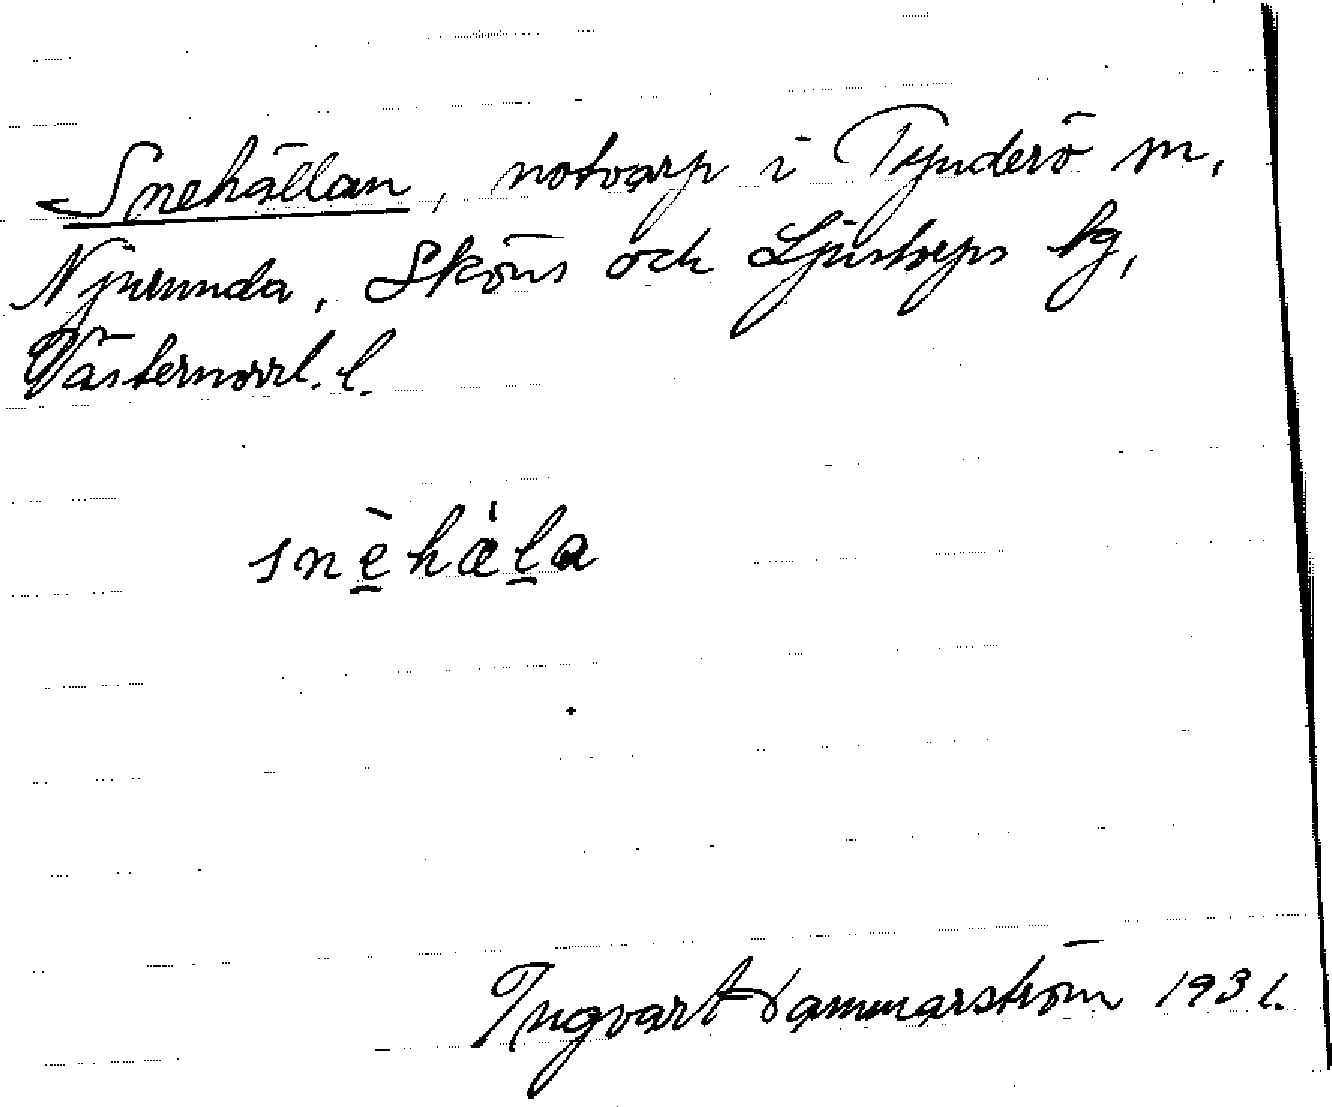 Snehällan, notvarp i Tynderö sn,
Njurunda, Sköns och Ljustorps tg,
Västernorrl. l.
snèhä̀la
Ingvart Hammarström 1931.